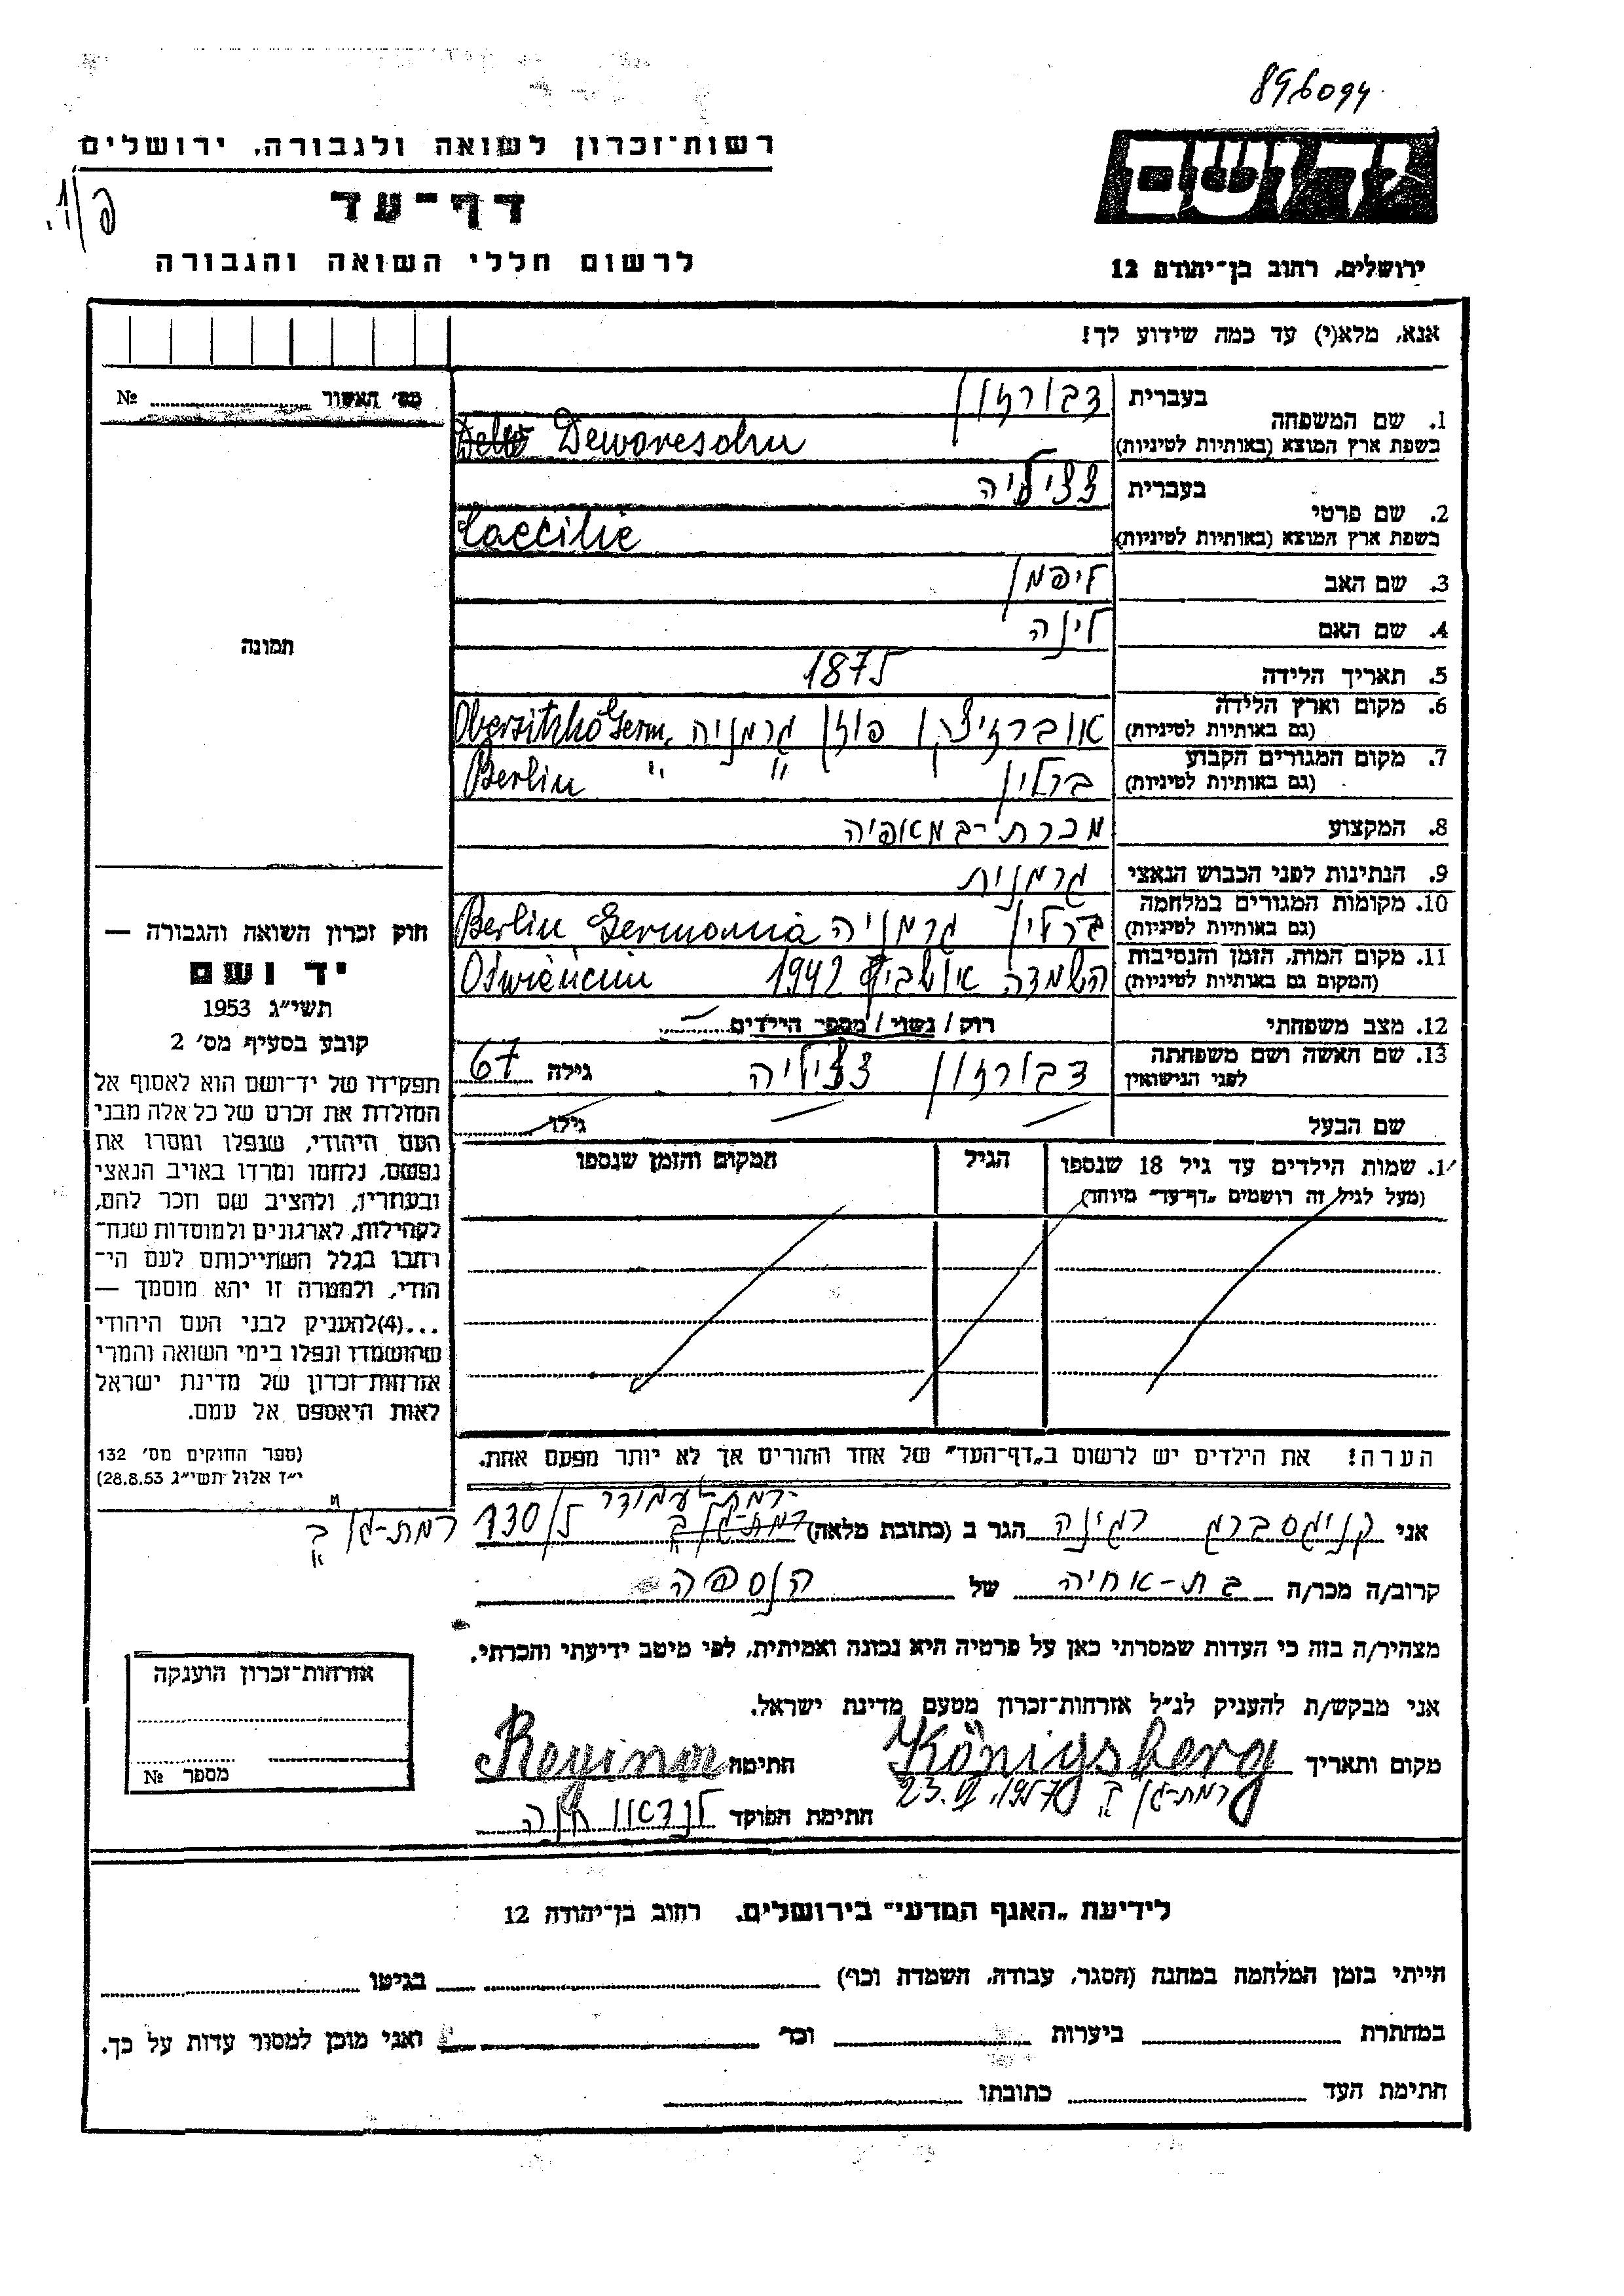 896094
רשות־זכרון לשואה ולגבורה, ירושלים
דף־עד
לרשום חללי השואה והגבורה
יד ושם
ירושלים, רחוב בן־יהודה 12
אנא, מלא(י) עד כמה שידוע לך!
מס׳ האשור ... №
תמונה
1. שם המשפחה
בעברית דבורזון
בשפת ארץ המוצא (באותיות לטיניות) Deworesohn
2. שם פרטי
בעברית צציליה
בשפת ארץ המוצא (באותיות לטיניות) Caecilie
3. שם האב ליפמן
4. שם האם לינה
5. תאריך הלידה 1875
6. מקום וארץ הלידה
(גם באותיות לטיניות) אוברזיצקו פוזן גרמניה Obersitzko Germ.
7. מקום המגורים הקבוע
(גם באותיות לטיניות) ברלין " " Berlin
8. המקצוע מכרת־במאפיה
9. הנתינות לפני הכבוש הנאצי גרמנית
10. מקומות המגורים במלחמה
(גם באותיות לטיניות) ברלין גרמניה Berlin Germania
11. מקום המות, הזמן והנסיבות
(המקום גם באותיות לטיניות) השמדה אושביץ 1942 Oświęcim
12. מצב משפחתי רוק / נשוי / מספר הילדים
13. שם האשה ושם משפחתה
לפני הנישואין דבורזון צציליה גילה 67
שם הבעל גילו
1. שמות הילדים עד גיל 18 שנספו
(מעל לגיל זה רושמים „דף־עד״ מיוחד)
הגיל
המקום והזמן שנספו
הערה! את הילדים יש לרשום ב„דף־העד״ של אחד ההורים אך לא יותר מפעם אחת.
חוק זכרון השואה והגבורה —
יד ושם
תשי״ג 1953
קובע בסעיף מס׳ 2
תפקידו של יד־ושם הוא לאסוף אל
המולדת את זכרם של כל אלה מבני
העם היהודי, שנפלו ומסרו את
נפשם, נלחמו ומרדו באויב הנאצי
ובעוזריו, ולהציב שם וזכר להם,
לקהילות, לארגונים ולמוסדות שנח־
רבו בגלל השתייכותם לעם הי־
הודי, ולמטרה זו יהא מוסמך —
...(4)להעניק לבני העם היהודי
שהושמדו ונפלו בימי השואה והמרי
אזרחות־זכרון של מדינת ישראל
לאות היאספם אל עמם.
(ספר החוקים מס׳ 132
י״ז אלול תשי״ג 28.8.53)
אני קניגסברג רגינה הגר ב (כתובת מלאה) רמת־גן ב 130/ל רמת-גן ב
קרוב/ה מכר/ה בת-אחיה של הנספה
מצהיר/ה בזה כי העדות שמסרתי כאן על פרטיה היא נכונה ואמיתית, לפי מיטב ידיעתי והכרתי.
אני מבקש/ת להעניק לנ״ל אזרחות־זכרון מטעם מדינת ישראל.
מקום ותאריך Königsberg חתימה Regina
רמת-גן ב 23.VI.1957
חתימת הפוקד לנדאו חנה
אזרחות־זכרון הוענקה
מספר №
לידיעת „האגף המדעי״ בירושלים, רחוב בן־יהודה 12
הייתי בזמן המלחמה במחנה (הסגר, עבודה, השמדה וכו׳) בגיטו
במחתרת ביערות וכו׳ ואני מוכן למסור עדות על כך.
חתימת העד כתובתו